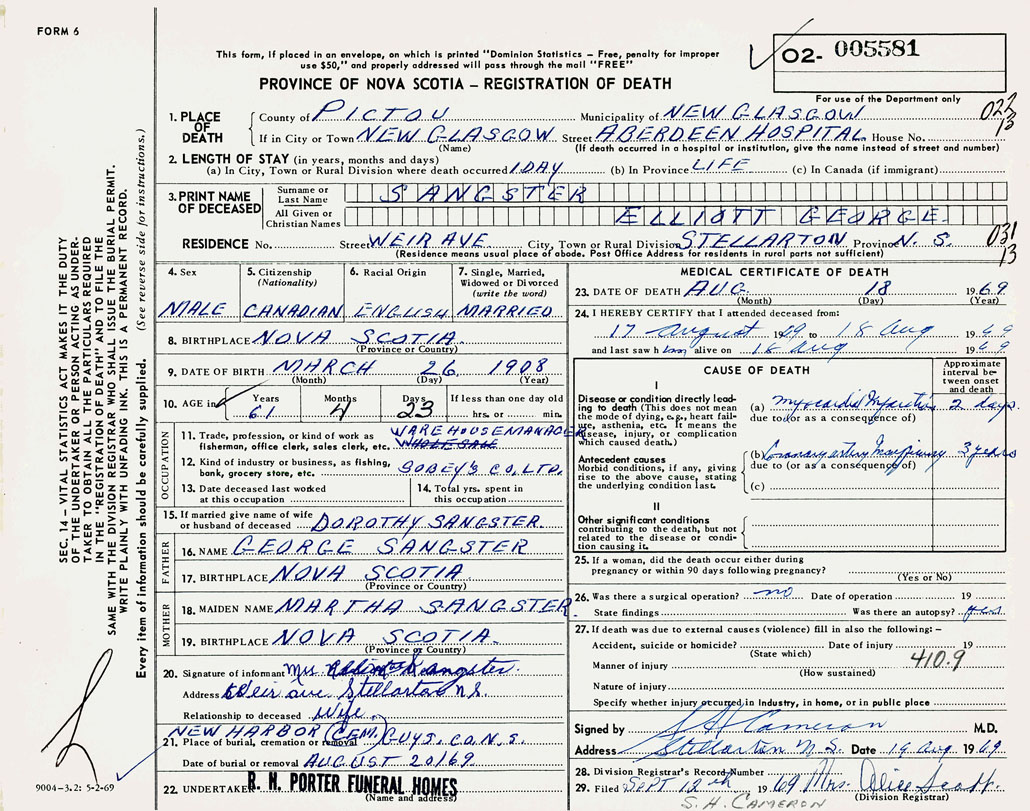 FORM 6
This form, if placed in an envelope, on which is printed "Dominion Statistics – Free, penalty for improper
use $50," and properly addressed will pass through the mail "FREE"
O2- 005581
PROVINCE OF NOVA SCOTIA – REGISTRATION OF DEATH
For use of the Department only
1. PLACE OF DEATH
County of PICTOU Municipality of NEW GLASGOW
022
13
If in City or Town NEW GLASGOW Street ABERDEEN HOSPITAL House No.
(Name) (If death occurred in a hospital or institution, give the name instead of street and number)
2. LENGTH OF STAY (in years, months and days)
(a) In City, Town or Rural Division where death occurred 1 DAY (b) In Province LIFE (c) In Canada (if immigrant)
3. PRINT NAME OF DECEASED
Surname or Last Name SANGSTER
All Given or Christian Names ELLIOTT GEORGE
RESIDENCE No. Street WEIR AVE City, Town or Rural Division STELLARTON Province N.S.
031
13
(Residence means usual place of abode. Post Office Address for residents in rural parts not sufficient)
4. Sex
MALE
5. Citizenship
(Nationality)
CANADIAN
6. Racial Origin
ENGLISH
7. Single, Married,
Widowed or Divorced
(write the word)
MARRIED
8. BIRTHPLACE NOVA SCOTIA
(Province or Country)
9. DATE OF BIRTH MARCH 26 1908
(Month) (Day) (Year)
10. AGE in
Years Months Days If less than one day old
61 4 23 hrs. or min.
OCCUPATION
11. Trade, profession, or kind of work as WAREHOUSE MANAGER
fisherman, office clerk, sales clerk, etc. WHOLESALE
12. Kind of industry or business, as fishing,
bank, grocery store, etc. SOBEY'S CO. LTD.
13. Date deceased last worked
at this occupation
14. Total yrs. spent in
this occupation
15. If married give name of wife
or husband of deceased DOROTHY SANGSTER
FATHER
16. NAME GEORGE SANGSTER
17. BIRTHPLACE NOVA SCOTIA
(Province or Country)
MOTHER
18. MAIDEN NAME MARTHA SANGSTER
19. BIRTHPLACE NOVA SCOTIA
(Province or Country)
20. Signature of informant Mrs Sangster
Address Weir ave Stellarton N.S.
Relationship to deceased Wife
NEW HARBOR (CEM.) GUYS. CO. N.S.
21. Place of burial, cremation or removal
Date of burial or removal AUGUST 20 1969
22. UNDERTAKER R. H. PORTER FUNERAL HOMES
(Name and address)
MEDICAL CERTIFICATE OF DEATH
23. DATE OF DEATH AUG. 18 1969
(Month) (Day) (Year)
24. I HEREBY CERTIFY that I attended deceased from:
17 August 1969 to 18 Aug 1969
and last saw him alive on 18 Aug 1969
CAUSE OF DEATH
Approximate
interval between
onset
and death
I
Disease or condition directly leading
to death (This does not mean
the mode of dying, e.g., heart failure,
asthenia, etc. It means the
disease, injury, or complication
which caused death.)
(a) Myocardial Infarction 2 days
due to (or as a consequence of)
Antecedent causes
Morbid conditions, if any, giving
rise to the above cause, stating
the underlying condition last.
(b) Coronary artery Insufficiency 3 years
due to (or as a consequence of)
(c)
II
Other significant conditions
contributing to the death, but not
related to the disease or condition
causing it.
25. If a woman, did the death occur either during
pregnancy or within 90 days following pregnancy?
(Yes or No)
26. Was there a surgical operation? no Date of operation 19
State findings Was there an autopsy? yes
27. If death was due to external causes (violence) fill in also the following: –
Accident, suicide or homicide? Date of injury 19
(State which)
410.9
Manner of injury
(How sustained)
Nature of injury
Specify whether injury occurred in Industry, in home, or in public place
Signed by S H Cameron M.D.
Address Stellarton N.S. Date 19 Aug. 1969
28. Division Registrar's Record Number
29. Filed SEPT 12th 1969 Mrs. Alice Scott
(Division Registrar)
S. H. CAMERON
SEC. 14 – VITAL STATISTICS ACT MAKES IT THE DUTY
OF THE UNDERTAKER OR PERSON ACTING AS UNDERTAKER
TO OBTAIN ALL THE PARTICULARS REQUIRED
IN THE "REGISTRATION OF DEATH" AND TO FILE THE
SAME WITH THE DIVISION REGISTRAR WHO SHALL ISSUE THE BURIAL PERMIT.
WRITE PLAINLY WITH UNFADING INK. THIS IS A PERMANENT RECORD.
Every item of information should be carefully supplied. (See reverse side for instructions.)
9004-3.2: 5-2-69